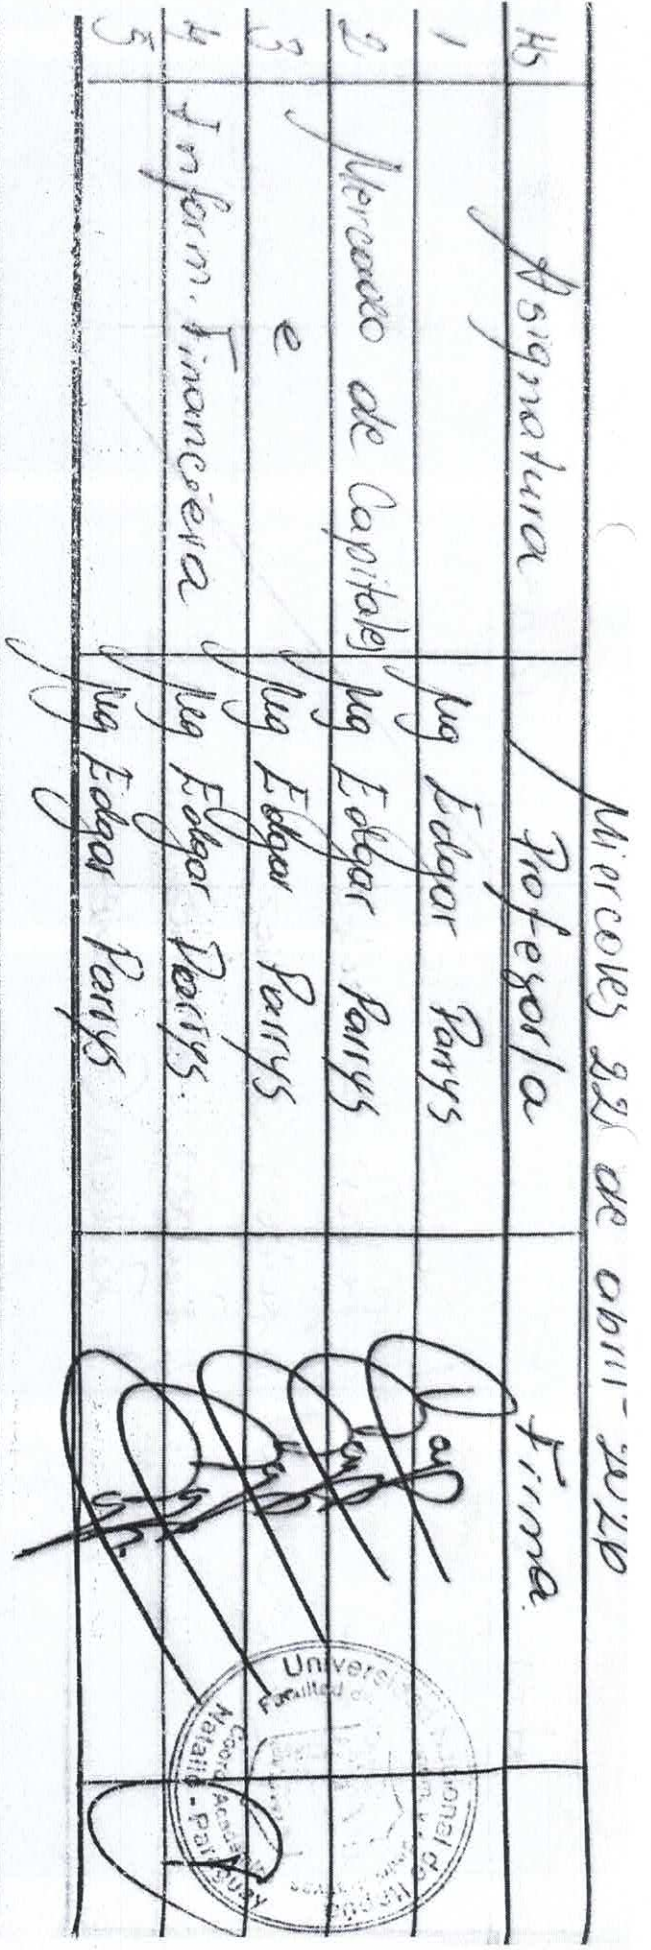 Miercoles 22 de abril - 2020
Hs Asignatura Profesor/a Firma
1 Mg Edgar Parrys
2 Mercado de Capitales Mg Edgar Parrys
3 e Mg Edgar Parrys
4 Inform. Financiera Mg Edgar Parrys.
5 Mg Edgar Parrys
Universidad Nacional de Itapúa
Facultad de
Coord. Académica
Natalio - Paraguay